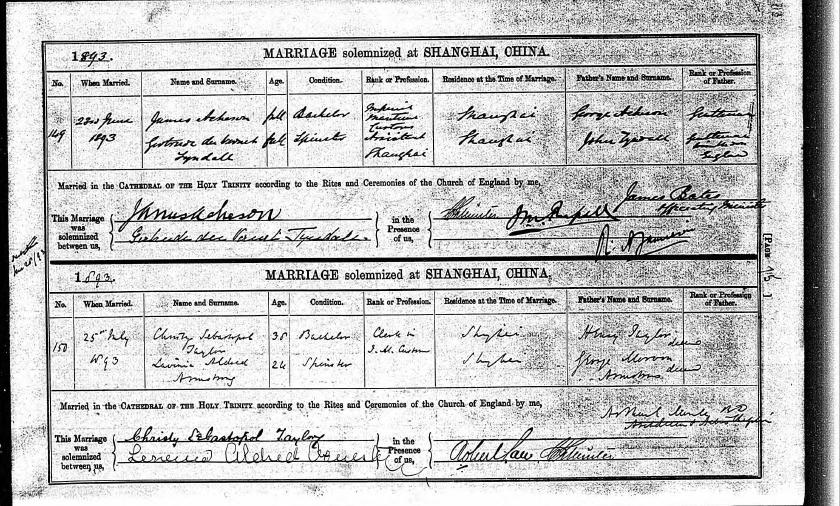 1893. MARRIAGE solemnized at SHANGHAI, CHINA.
No. When Married. Name and Surname. Age. Condition. Rank or Profession. Residence at the Time of Marriage. Father's Name and Surname. Rank or Profession of Father.
149 22nd June 1893 James Acheson full Bachelor Imperial Maritime Customs Assistant Shanghai Shanghai George Acheson Gentleman
Gertrude Tyndall full Spinster Shanghai John Tyndall Gentleman England
Married in the CATHEDRAL OF THE HOLY TRINITY according to the Rites and Ceremonies of the Church of England by me,
James Bates
Officiating Minister
This Marriage was solemnized between us,
James Acheson
Gertrude Tyndall
in the Presence of us,
[PAGE 75]
1893. MARRIAGE solemnized at SHANGHAI, CHINA.
No. When Married. Name and Surname. Age. Condition. Rank or Profession. Residence at the Time of Marriage. Father's Name and Surname. Rank or Profession of Father.
150 25th July 1893 Christy Sebastopol Taylor 38 Bachelor Clerk in I. M. Customs Shanghai Henry Taylor
Lavinia Aldred Armstrong 26 Spinster Shanghai George Armstrong
Married in the CATHEDRAL OF THE HOLY TRINITY according to the Rites and Ceremonies of the Church of England by me,
This Marriage was solemnized between us,
Christy Sebastopol Taylor
Aldred
in the Presence of us,
Robert Law